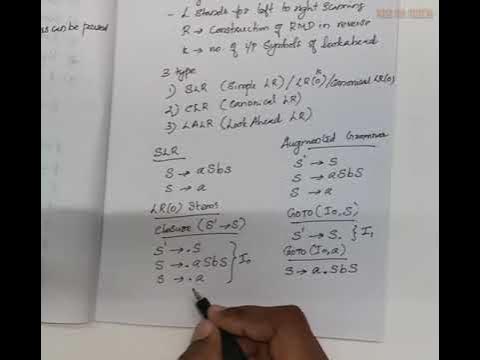 ss can be parsed
- L stands for left to right scanning
R → Construction of RMD in reverse
k → no. of i/p symbols of lookahead
3 type
1) SLR (Simple LR)/LR(0)/Canonical LR(0)
2) CLR (Canonical LR)
3) LALR (Look Ahead LR)
SLR
S → aSbS
S → a
Augmented Grammar
S' → S
S → aSbS
S → a
LR(0) Items
Closure (S' → S)
S' → .S
S → .aSbS
S → .a
} I0
GOTO (I0, S)
S' → S. } I1
GOTO (I0, a)
S → a.SbS